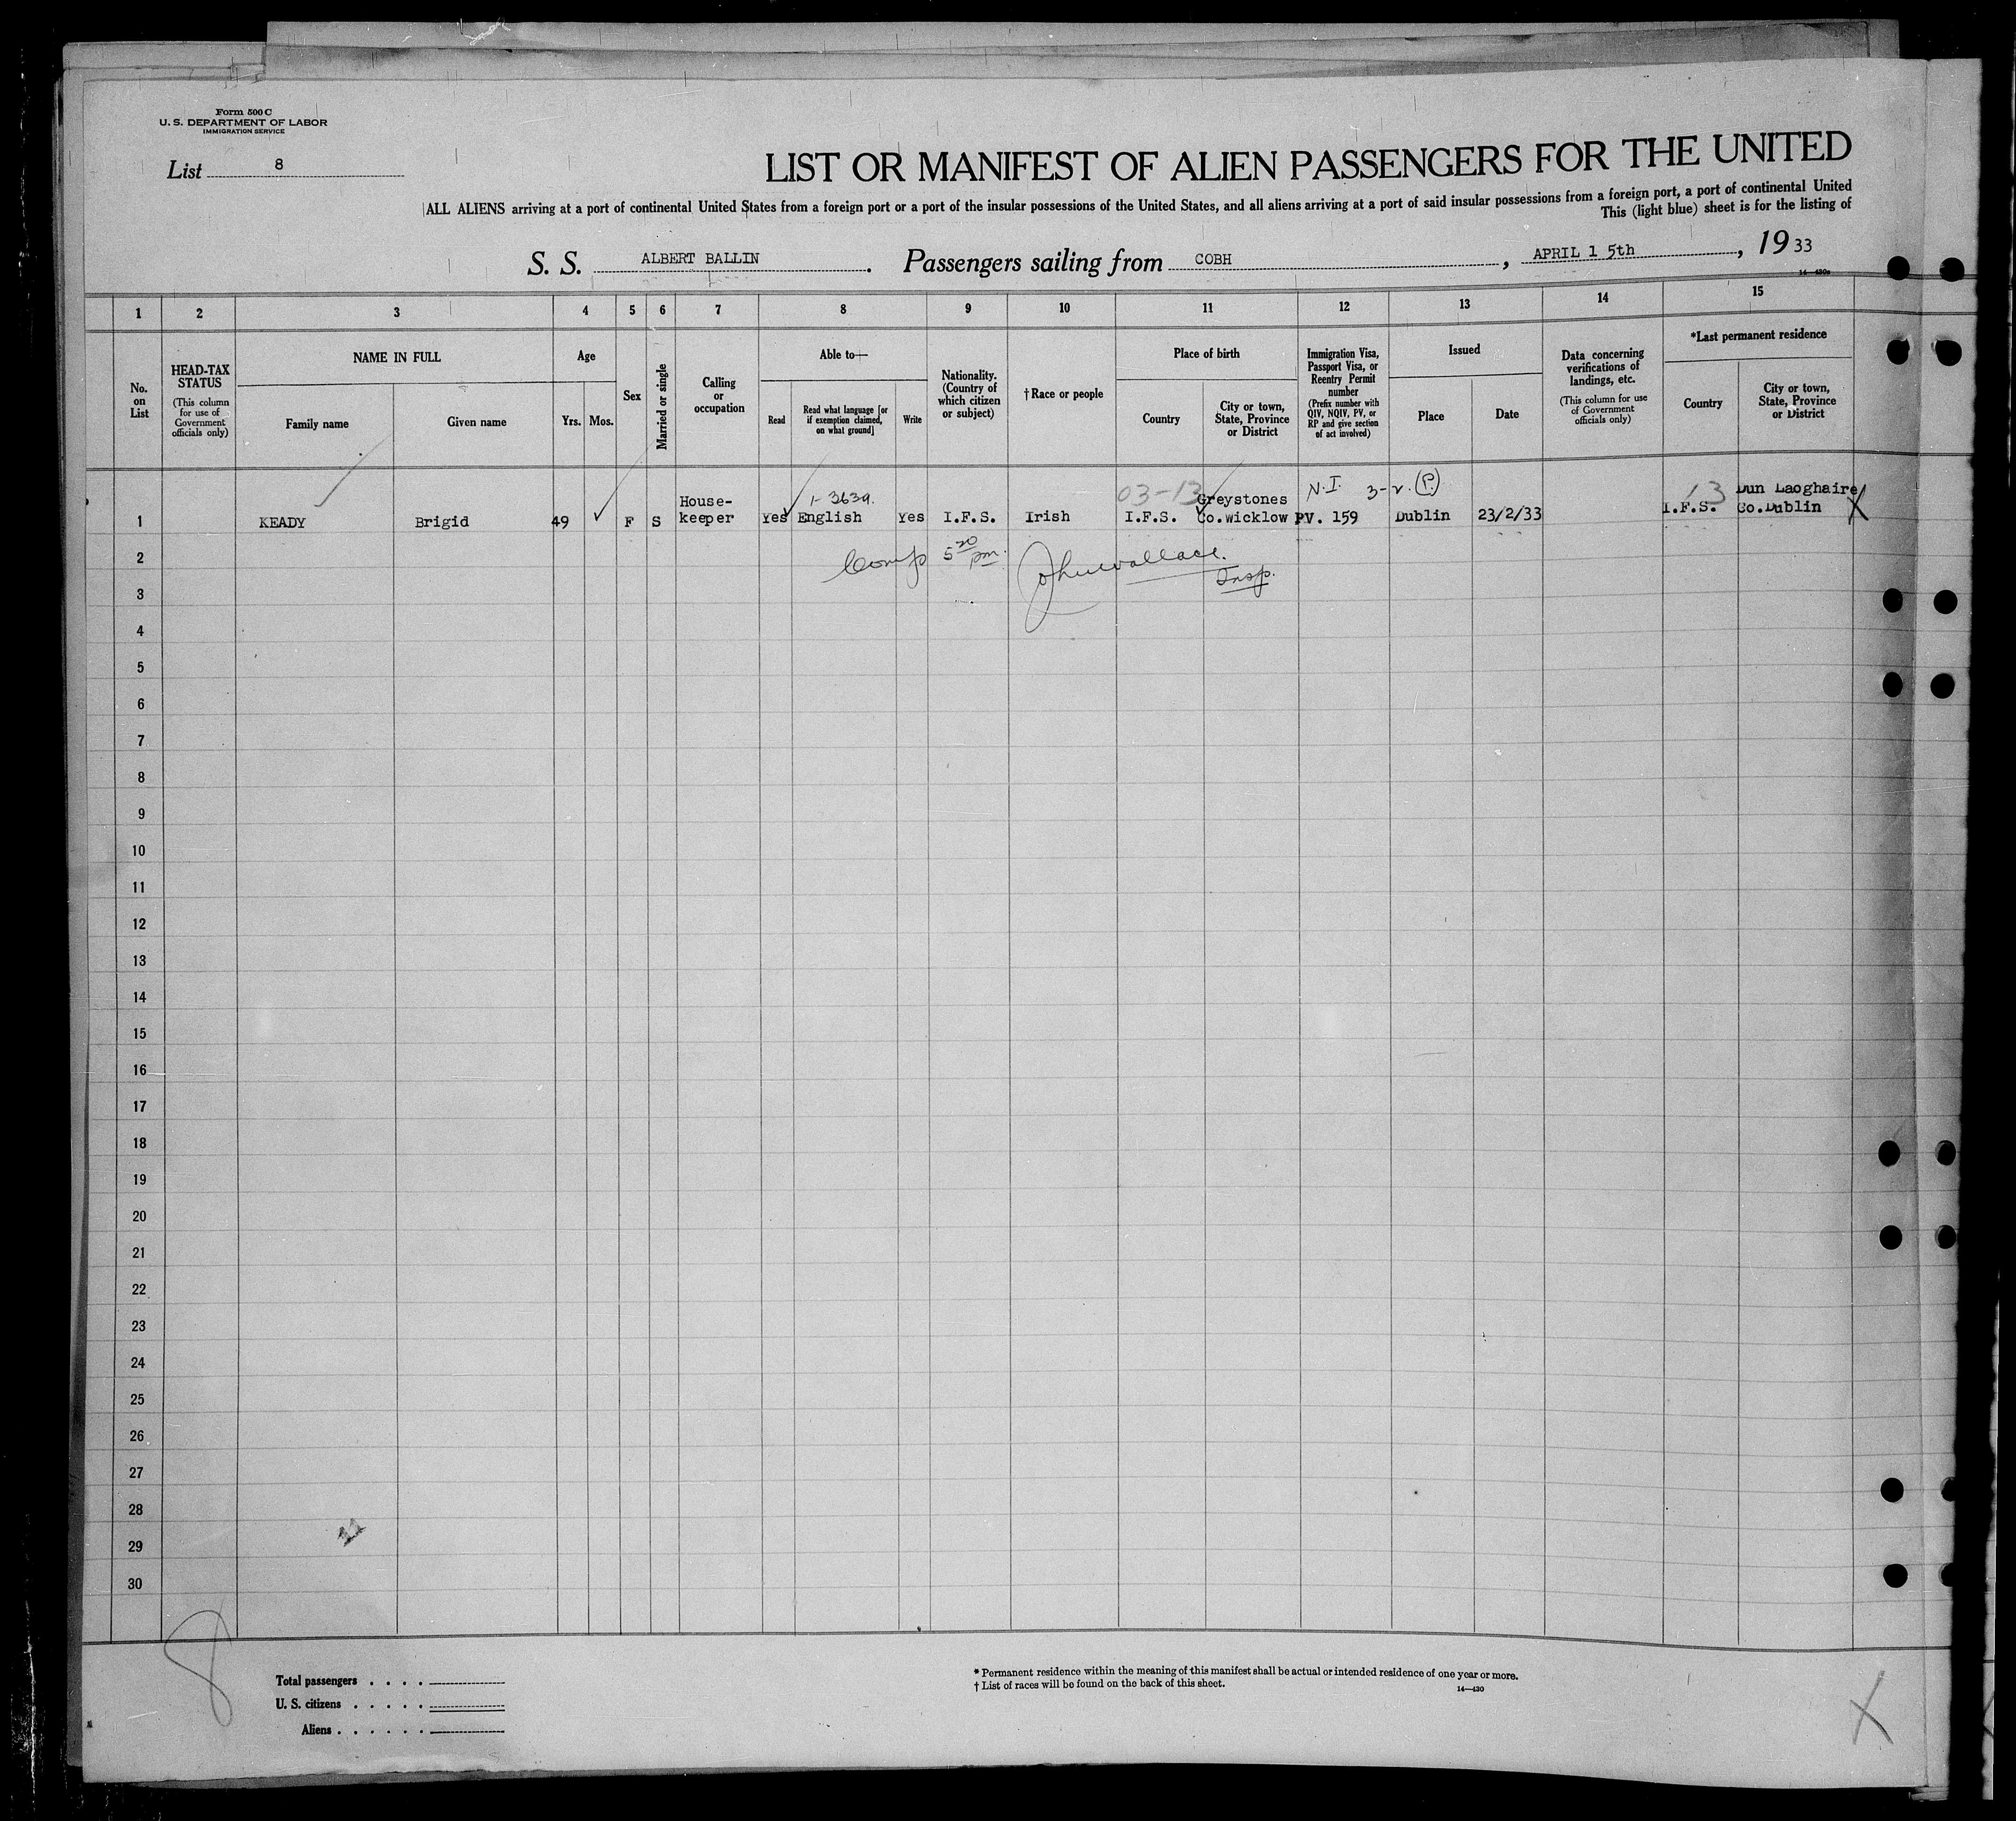 Form 500 C
U. S. DEPARTMENT OF LABOR
IMMIGRATION SERVICE
List 8
LIST OR MANIFEST OF ALIEN PASSENGERS FOR THE UNITED
ALL ALIENS arriving at a port of continental United States from a foreign port or a port of the insular possessions of the United States, and all aliens arriving at a port of said insular possessions from a foreign port, a port of continental United
This (light blue) sheet is for the listing of
S. S. ALBERT BALLIN. Passengers sailing from COBH, APRIL 1 5th, 19 33
14—430a
1 2 3 4 5 6 7 8 9 10 11 12 13 14 15
No. on List
HEAD-TAX STATUS
(This column for use of Government officials only)
NAME IN FULL
Family name
Given name
Age
Yrs. Mos.
Sex
Married or single
Calling or occupation
Able to—
Read
Read what language [or if exemption claimed, on what ground]
Write
Nationality. (Country of which citizen or subject)
†Race or people
Place of birth
Country
City or town, State, Province or District
Immigration Visa, Passport Visa, or Reentry Permit number
(Prefix number with QIV, NQIV, PV, or RP and give section of act involved)
Issued
Place
Date
Data concerning verifications of landings, etc.
(This column for use of Government officials only)
*Last permanent residence
Country
City or town, State, Province or District
House- 1-3639. 03-13 Greystones N.I. 3-2.(P) 13 Dun Laoghaire
1 KEADY Brigid 49 F S keeper Yes English Yes I.F.S. Irish I.F.S. Co.Wicklow PV. 159 Dublin 23/2/33 I.F.S. Co.Dublin X
2 Comp 5 20 pm. John Wallace.
Insp.
3
4
5
6
7
8
9
10
11
12
13
14
15
16
17
18
19
20
21
22
23
24
25
26
27
28
29
30
8
Total passengers . . . .
U. S. citizens . . . . .
Aliens . . . . . .
* Permanent residence within the meaning of this manifest shall be actual or intended residence of one year or more.
† List of races will be found on the back of this sheet.
14—430
X